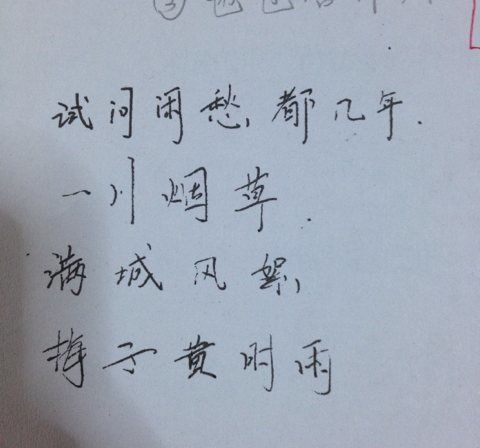 试问闲愁都几年.
一川烟草.
满城风絮,
梅子黄时雨